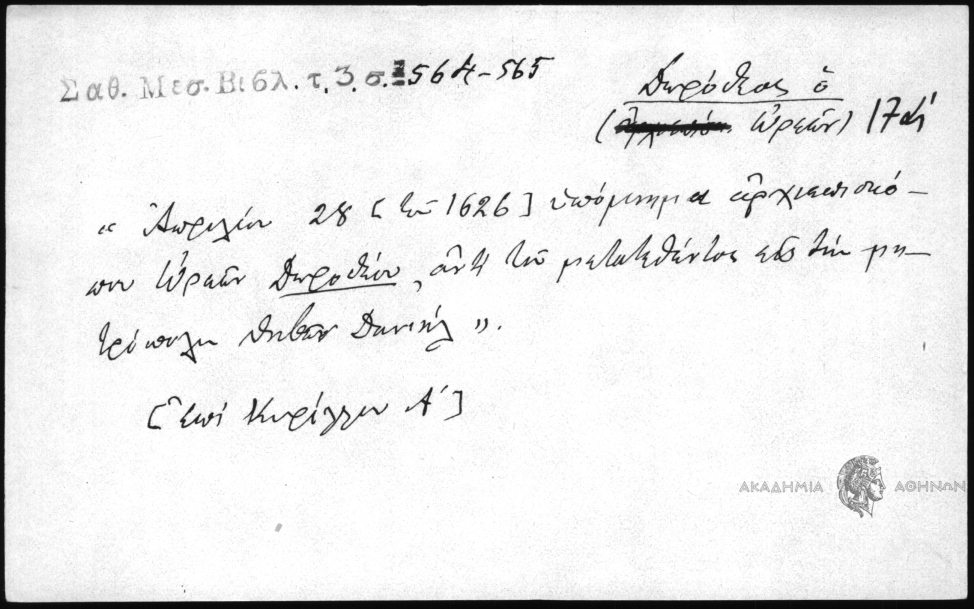 Σαθ. Μεσ. Βιβλ. τ. 3. σ. 564-565
Δωρόθεος ὁ
( Ὠρεῶν) 17 αἰ
« Ἀπριλίου 28 [τοῦ 1626] ὑπόμνημα ἀρχιεπισκό-
που Ὠρεῶν Δωροθέου, ἀντὶ τοῦ μετατεθέντος εἰς τὴν μη-
τρόπολιν Θηβῶν Δανιήλ».
[Ἐπὶ Κυρίλλου Α΄]
ΑΚΑΔΗΜΙΑ ΑΘΗΝΩΝ